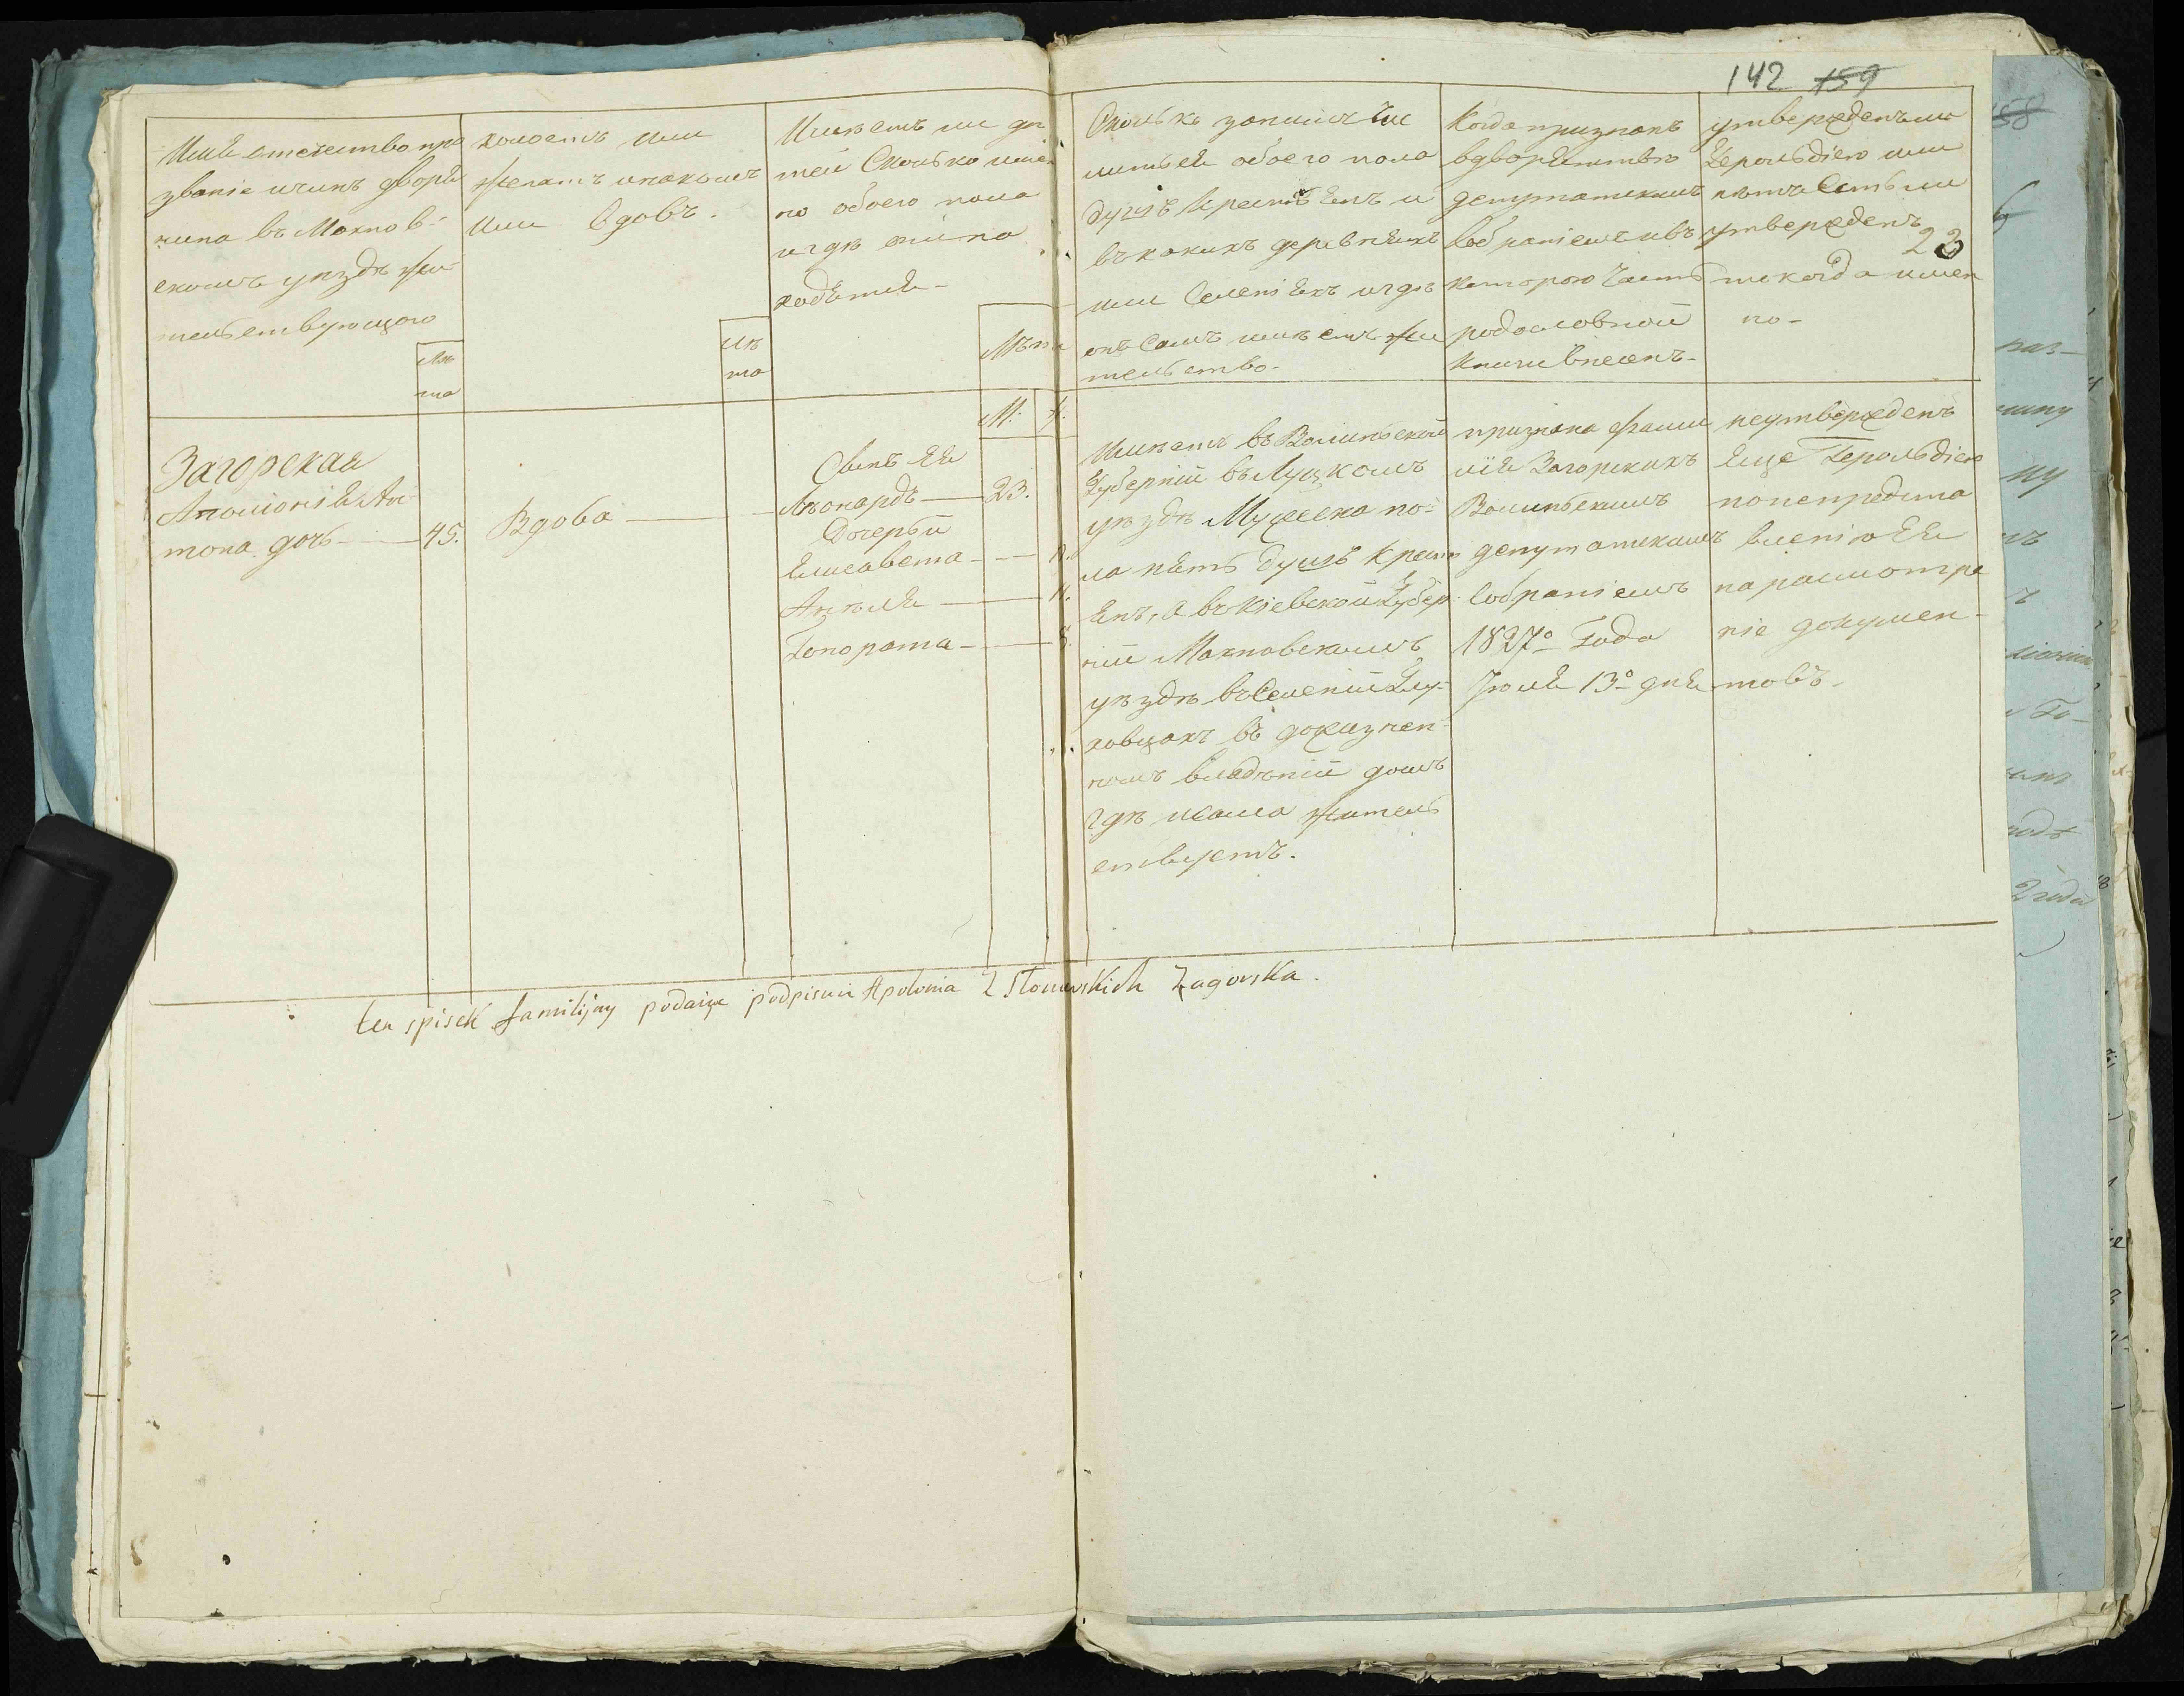 142 159
Имя отечество про
званіе и чинъ дворя
нина въ Махнов-
скомъ уѣздѣ жи
тельствующаго
Лѣ
та
холостъ или
женатъ и на комъ
или Вдовъ.
Лѣ
та
Имѣетъ ли дѣ
тей Сколько имен
но обоего пола
и гдѣ они на
ходятся-
Лѣта
М: Ж.
Сколько за нимъ чис
лится обоего пола
душъ крестьянъ и
въ какихъ деревняхъ
или Селеніяхъ и гдѣ
онъ Самъ имѣетъ жи
тельство.
Когда признанъ
въ дворянствѣ
депутатскимъ
Собраніемъ и въ
которою Часть
родословной
Книги внесенъ-
утвержденъ ли
Герольдіею или
нѣтъ Естьли
утвержденъ
то когда имен
но-
23
Загорская
Аполіонія Ан-
тона дочь - 45.
Вдова
Сынъ Ея
Леонардъ - 23.
Дочерьи
Елисавета -
Анѣля - 11.
Гонората - 8.
Имѣетъ въ Волынской
Губерніи въ Луцкомъ
уѣздѣ Мужеска по-
ла пять душъ крестъ
янъ, а въ Кіевской Губер
ніи Махновскомъ
уѣздѣ въ Селеніи Глу-
ховцахъ въ дожизнен-
номъ владѣніи домъ
гдѣ и сама житель
ствуетъ.
признана фами
лія Загорскихъ
Волынскимъ
депутатскимъ
Собраніемъ
1827го Года
Іюля 13го дня
неутвержденъ
Еще Герольдіею
по непредста
вленію Ея
на расмотре
ніе докумен-
товъ.
ten spisek familijny podaiąc podpisuie Apolonia z Słomskich Zagorska.